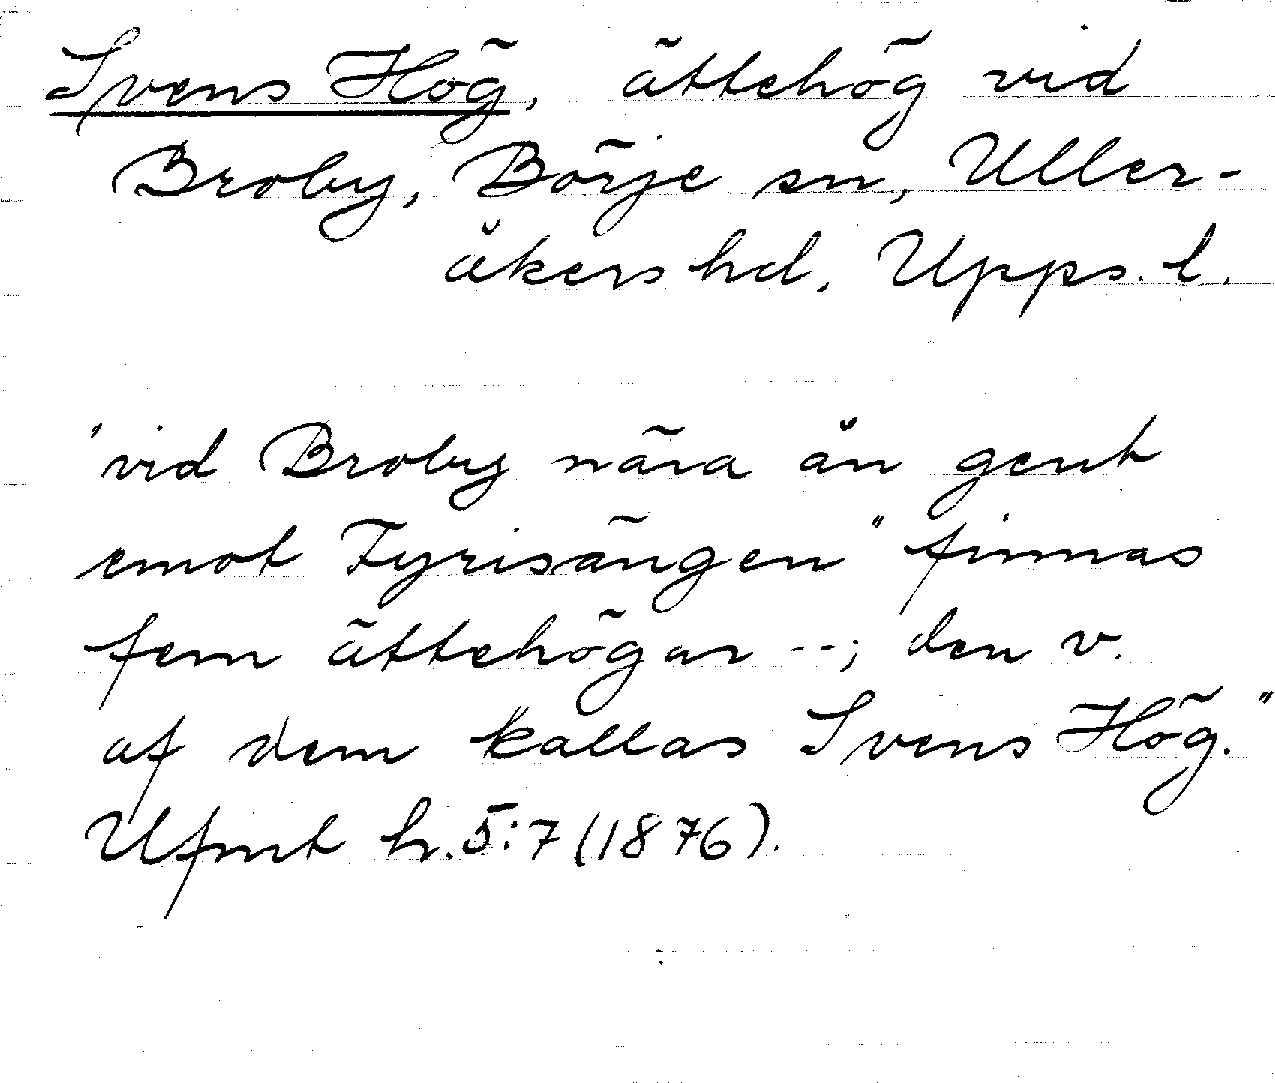 Svens Hög, ättehög vid
Broby, Börje sn, Uller-
åkers hd, Upps. l.
"vid Broby nära ån gent
emot Fyrisängen" finnas
fem ättehögar --; den v.
af dem kallas Svens Hög."
Ufmt h. 5:7 (1876).